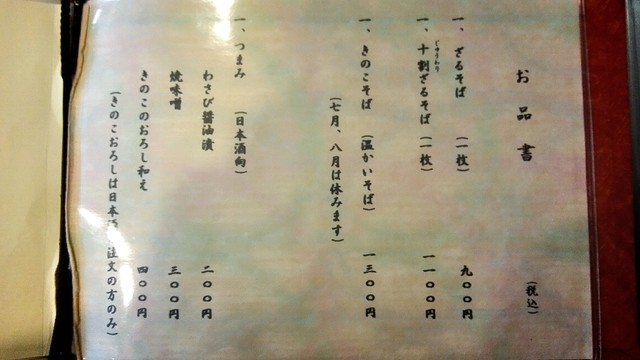 お品書 (税込)
一、ざるそば (一枚) 九〇〇円
じゅうわり
一、十割ざるそば (一枚) 一一〇〇円
一、きのこそば (温かいそば) 一三〇〇円
(七月、八月は休みます)
一、つまみ (日本酒向)
わさび醤油漬 二〇〇円
焼味噌 三〇〇円
きのこのおろし和え 四〇〇円
(きのこおろしは日本 注文の方のみ)